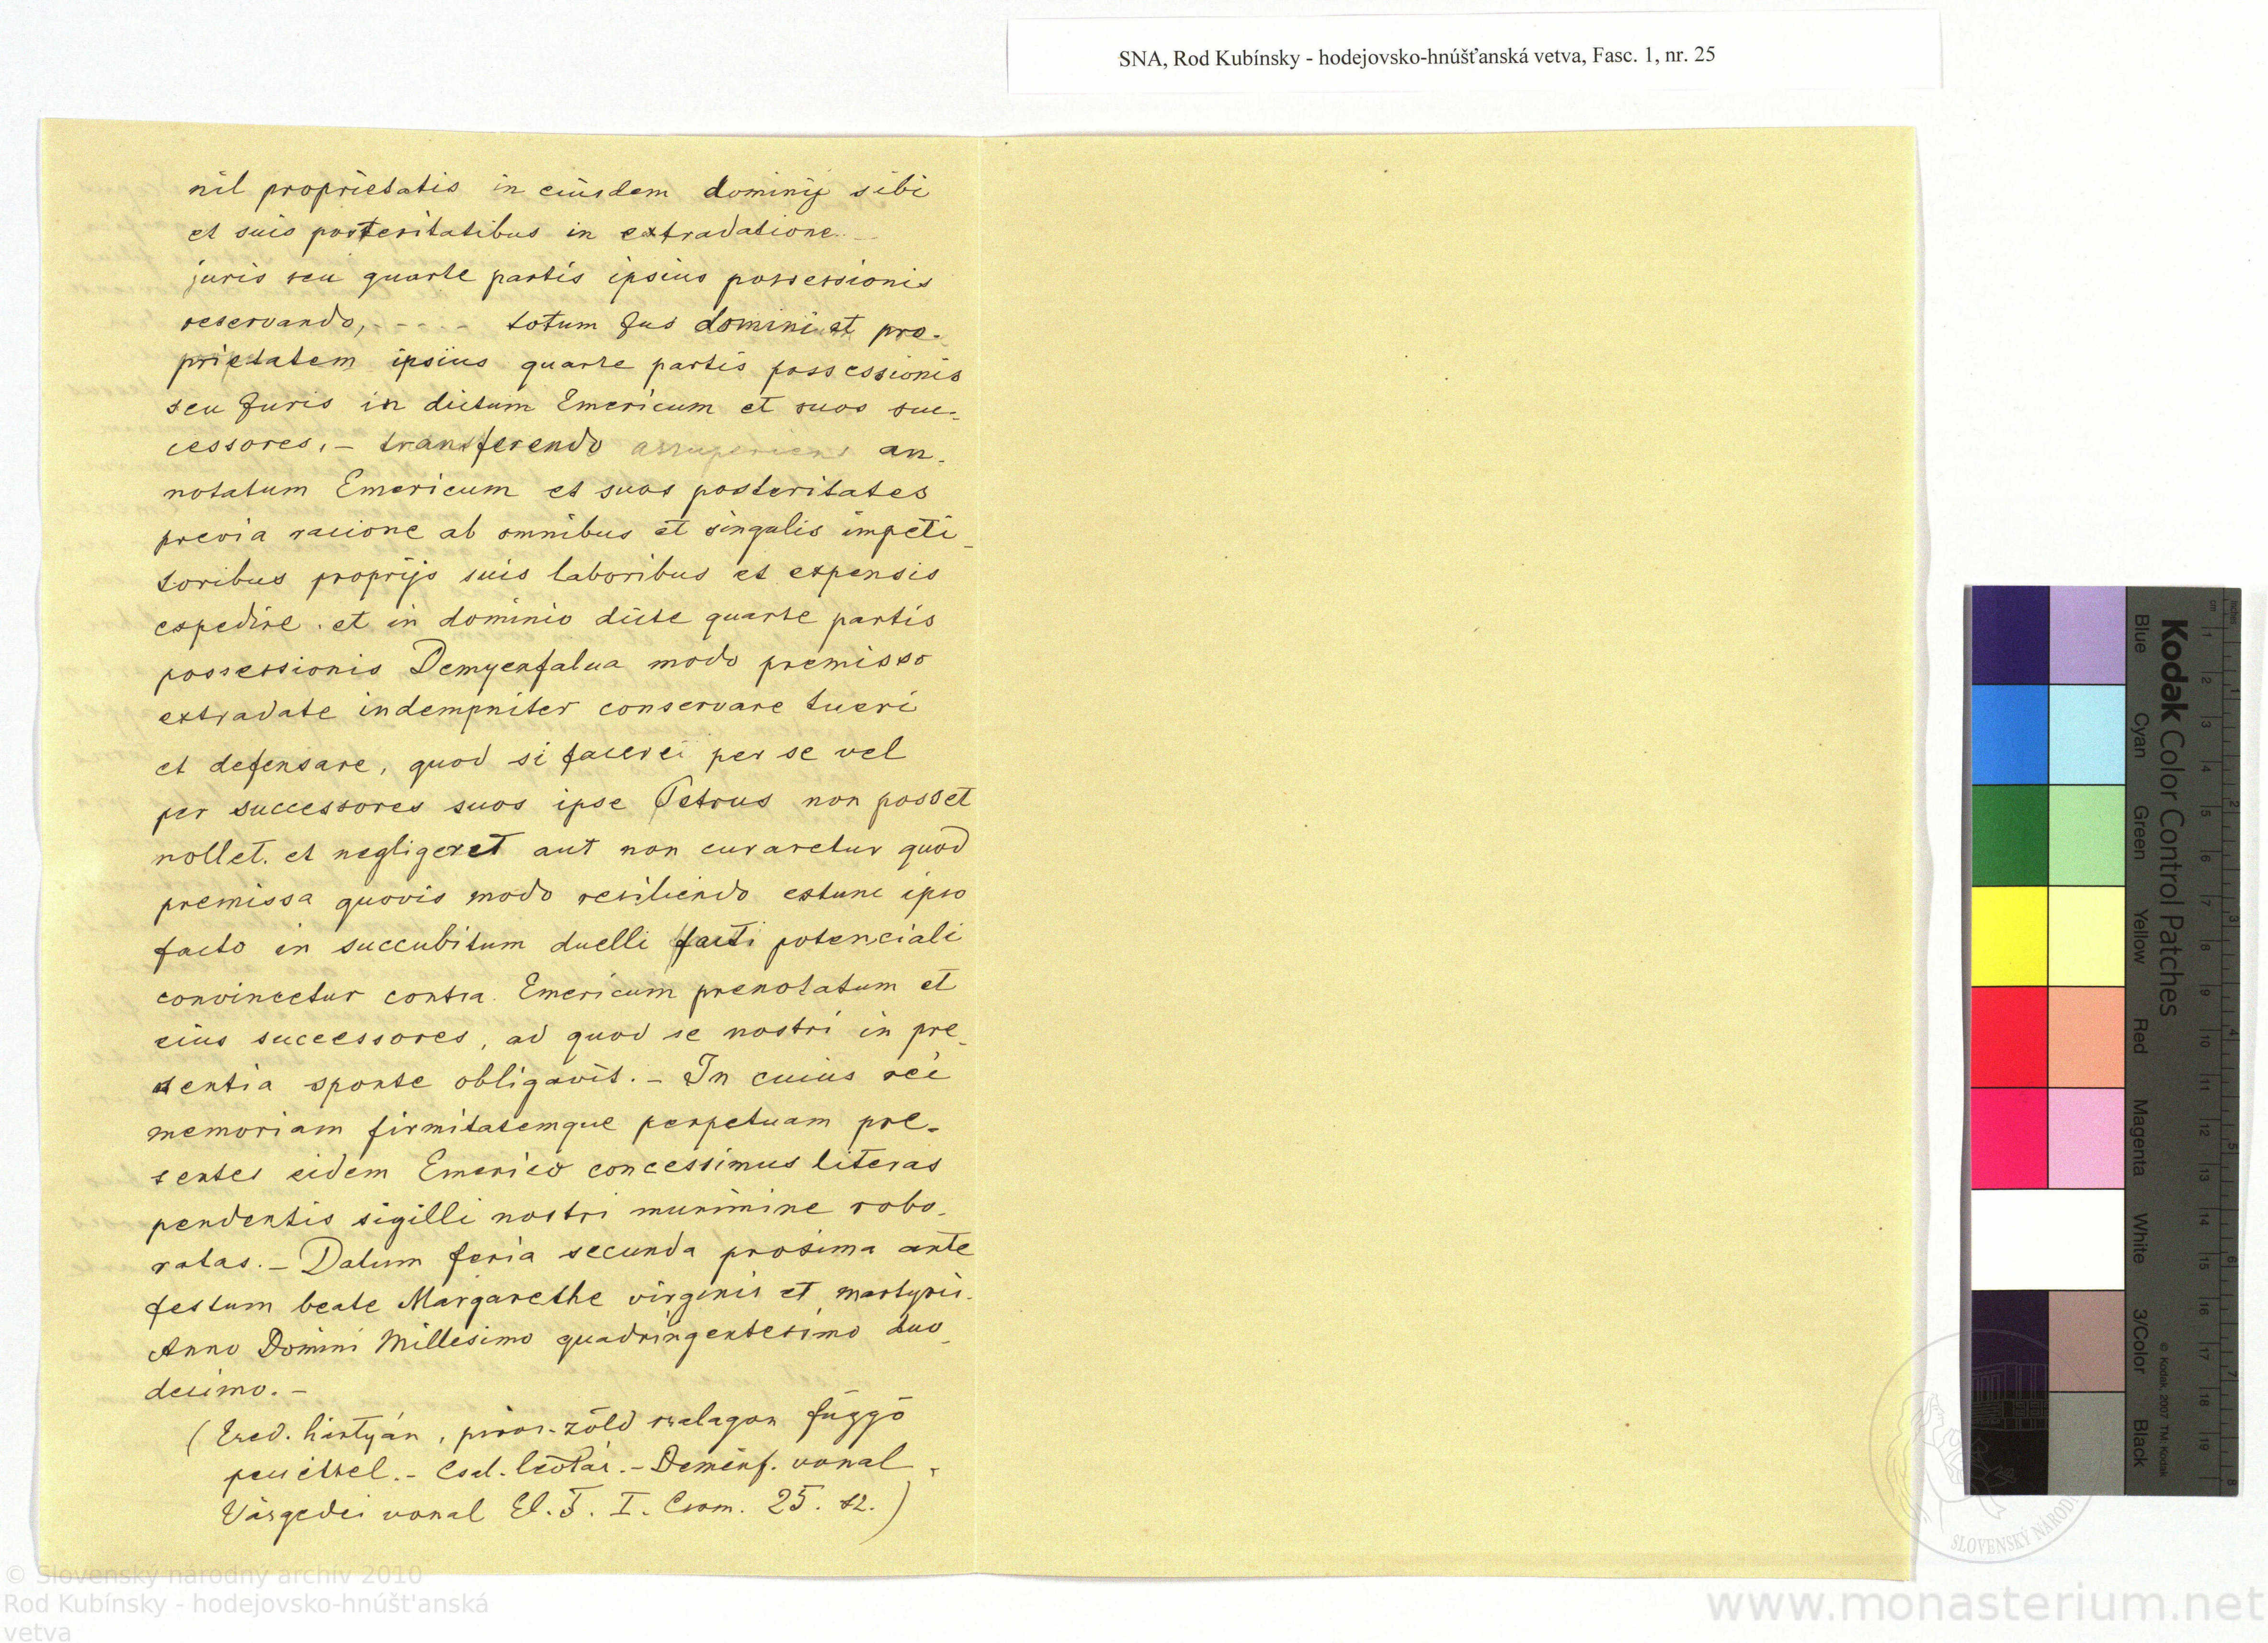 SNA, Rod Kubínsky - hodejovsko-hnúšťanská vetva, Fasc. 1, nr. 25
nil proprietatis in eiusdem dominij sibi
et suis posteritatibus in extradatione
juris seu quarte partis ipsius possessionis
reservando, - - - - totum Jus domini et pro-
prietatem ipsius quarte partis possessionis
seu Juris in dictum Emericum et suos suc-
cessores, - transferendo an-
notatum Emericum et suos posteritates
previa racione ab omnibus et singulis impeti-
toribus proprijs suis laboribus et expensis
expedire. et in dominio dicte quarte partis
possessionis Demyenfalua modo premisso
extradate indempniter conservare tueri
et defensare, quod si per se vel
per successores suos ipse Petrus non posset
nollet. et negligeret aut non curaretur quod
premissa quovis modo resiliendo extunc ipso
facto in succubitum duelli facti potenciali
convincetur contra Emericum prenotatum et
eius successores, ad quod se nostri in pre-
sentia sponte obligavit. - In cuius rei
memoriam firmitatemque perpetuam pre-
sentes eidem Emerico concessimus literas
pendentis sigilli nostri munimine robo-
ratas. - Datum feria secunda proxima ante
festum beate Margarethe virginis et martyris.
Anno Domini Millesimo quadringentesimo duo-
decimo. -
(Ered. hártyán, piros-zöld szalagon függő
pecséttel. - Csal. levéltár. - Deménf. vonal.
Várgedei vonal El. T. I. Csom. 25. sz.)
Kodak Color Control Patches
Blue
Cyan
Green
Yellow
Red
Magenta
White
3/Color
Black
© Kodak, 2007 TM: Kodak
inches
cm
1 2 3 4 5 6 7 8 9 10 11 12 13 14 15 16 17 18 19
1 2 3 4 5 6 7 8
SLOVENSKÝ NÁROD
© Slovenský národný archív 2010
Rod Kubínsky - hodejovsko-hnúšt'anská
vetva
www.monasterium.net